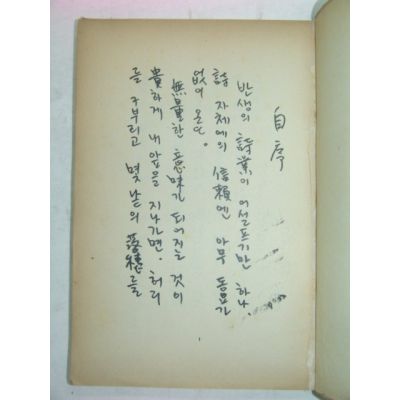 自序
반생의 詩業이 어설프기만 하나,
詩 자체에의 信賴엔 아무 동요가
없어 온다.
無量한 意味가 되어질 것이
貴하게 내앞을 지나가면, 허리
를 구부리고 몇 낱의 落穗를
1